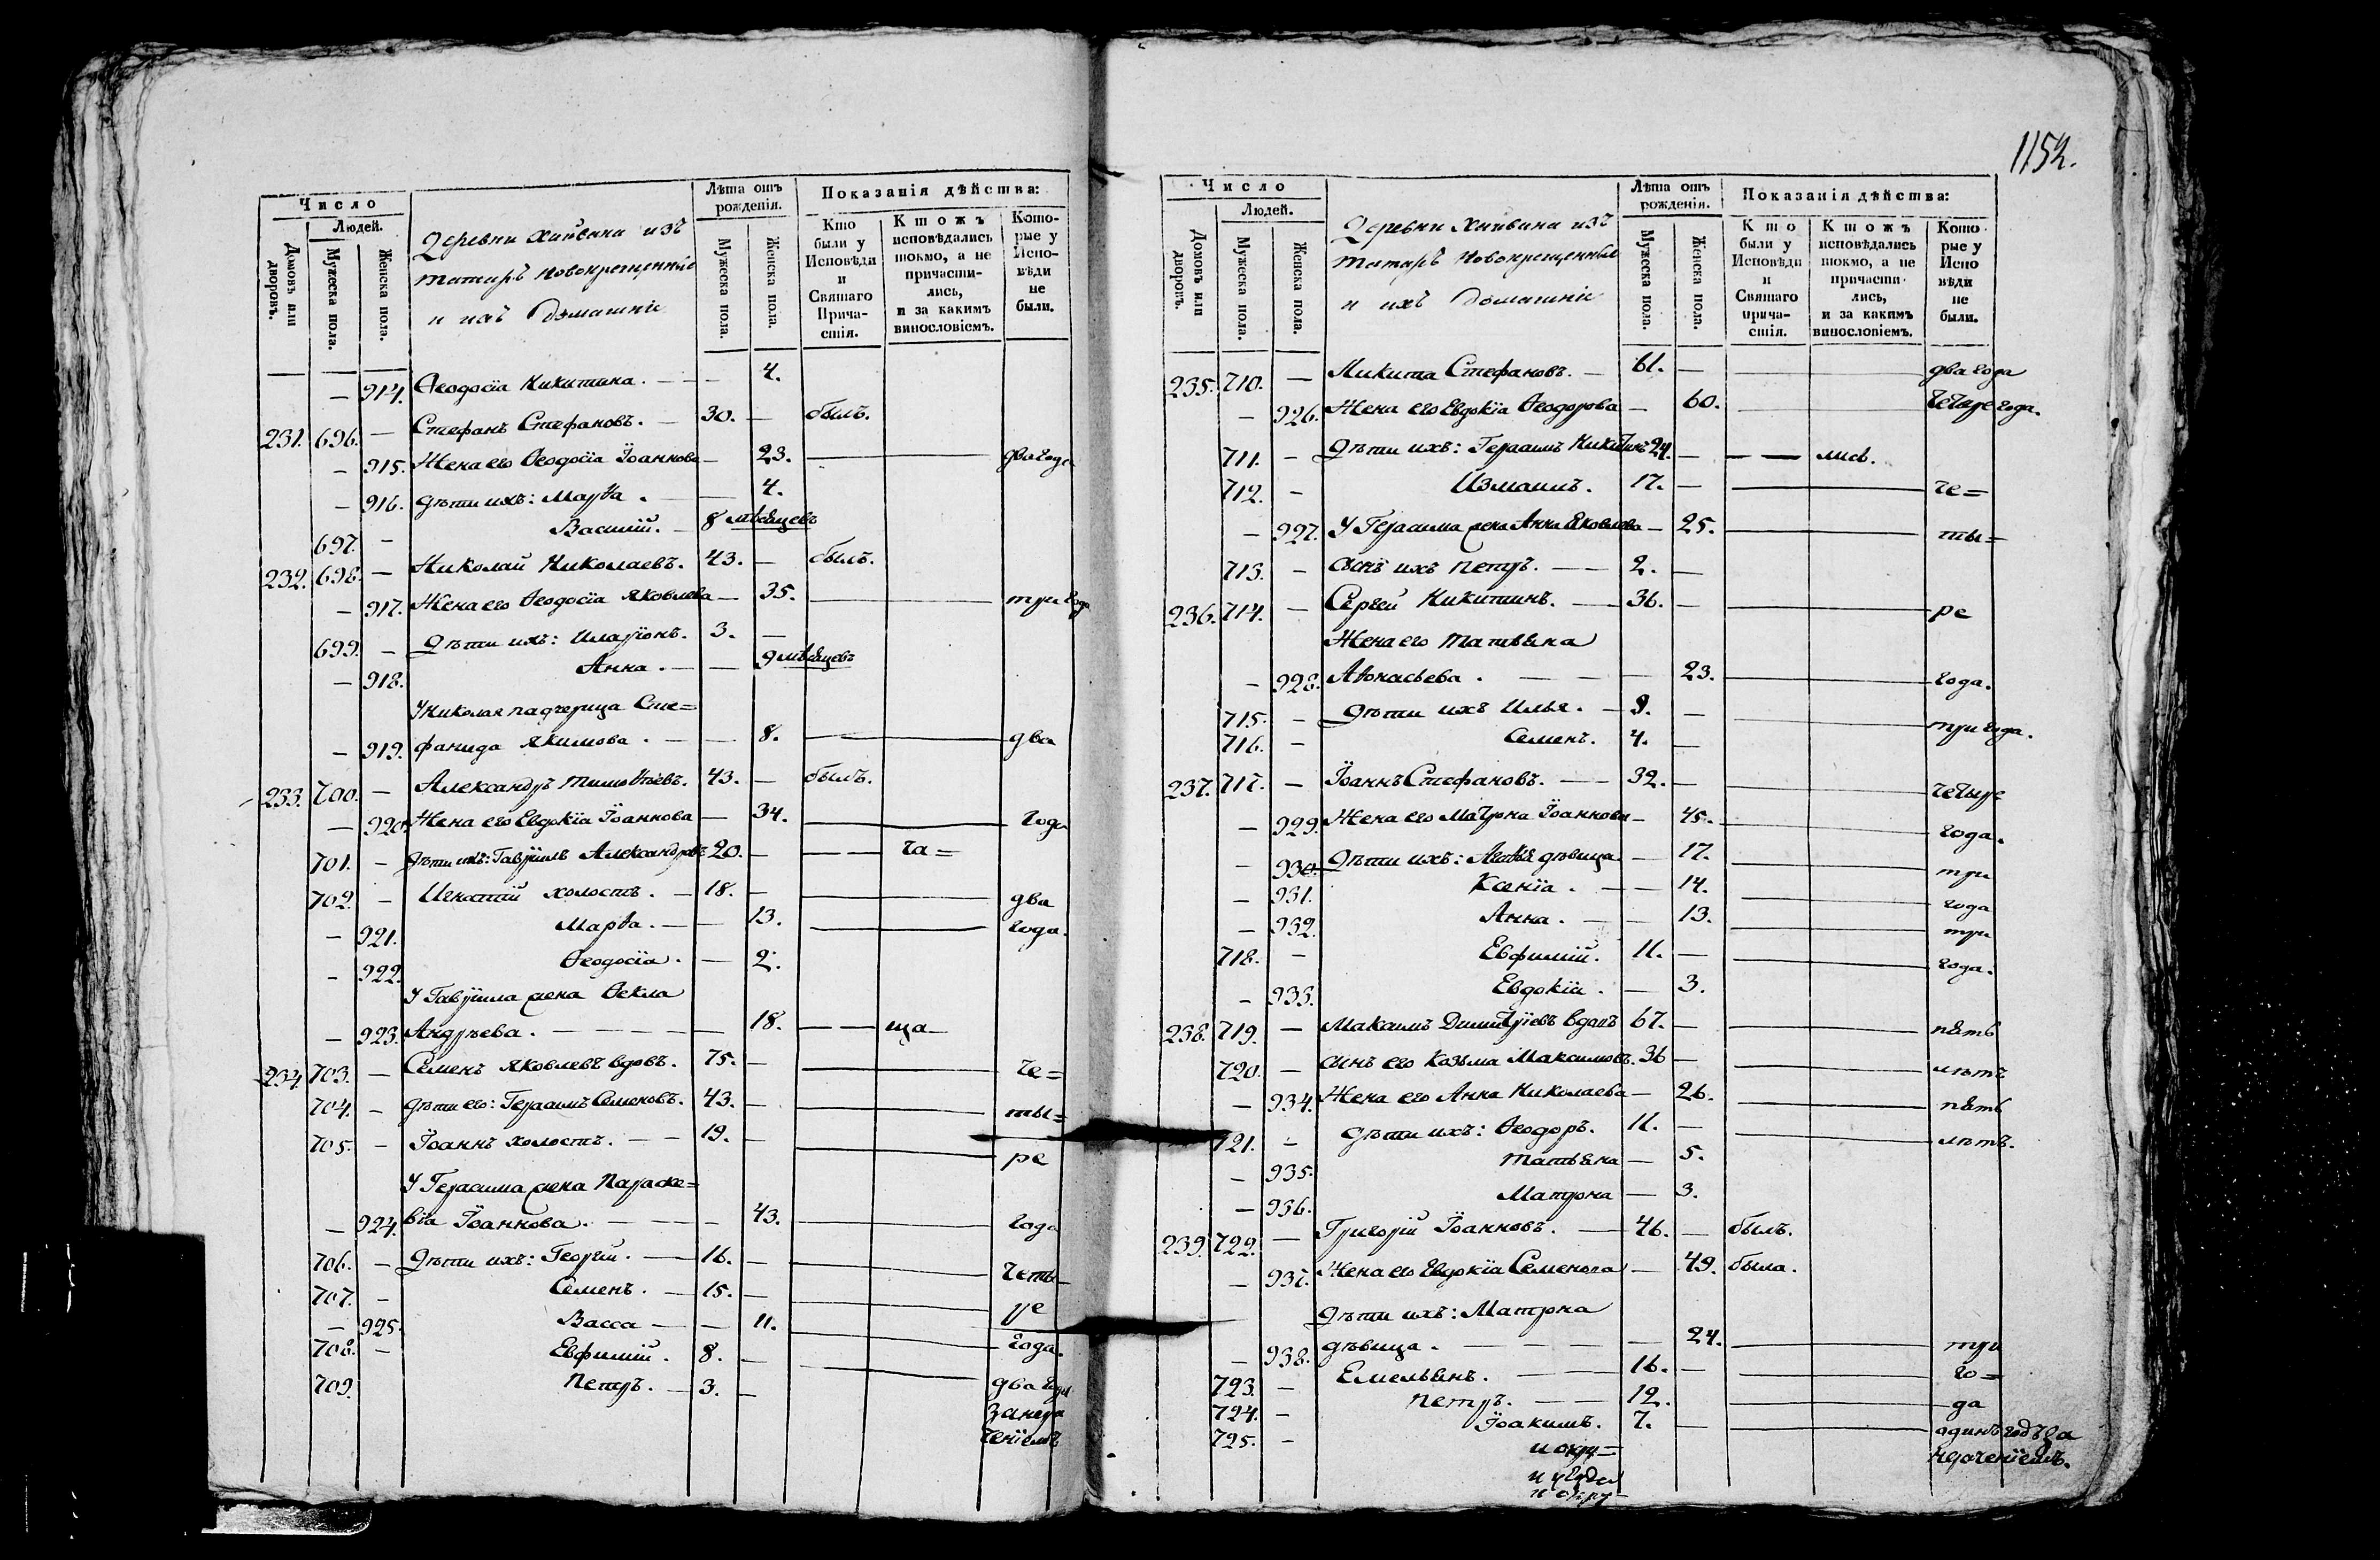 1152.
Число
Людей.
Домовъ или дворовъ.
Мужеска пола.
Женска пола.
Деревни Хайвина изъ
татаръ новокрещенныѣ
и ихъ домашніе
Лѣта отъ рожденія.
Мужеска пола.
Женска пола.
Показанія дѣйства:
Кто были у Исповѣди и Святаго Прича- стія.
Ктожъ исповѣдались токмо, а не причасти- лись, и за какимъ винословіемъ.
Кото- рые у Испо- вѣди не были.
— 914. Ѳеодосіа Никитина. — — 4.
231. 696. — Стефанъ Стефановъ. — 30. — былъ.
— 915. Жена его Ѳеодосіа Іоаннова — 23. — два года
— 916. Дѣти ихъ: Марѳа. — 4.
697. — Василій. — 8 мѣсяцевъ
232. 698. — Николай Николаевъ. 43. — былъ.
— 917. Жена его Ѳеодосіа Яковлева — 35. — три года
699. — Дѣти ихъ: Иларіонъ. 3. —
— 918. Анна. — — 9 мѣсяцевъ
У Николая падчерица Сте=
— 919. фанида Якимова. — 8. — два
233. 700. — Александръ Тимоѳѣевъ. 43. — былъ.
— 920. Жена его Евдокіа Іоаннова — 34. — года
701. — Дѣти ихъ: Гавріилъ Александровъ 20. — — ча=
702. — Игнатій холостъ. — 18. — два
— 921. Марѳа. — — 13. — года.
— 922. Ѳеодосіа. — 2.
У Гавріила жена Ѳекла
— 923. Андрѣева. — 18. — ща—
234. 703. — Семенъ Яковлевъ вдовъ. 75. — че=
704. — Дѣти его: Герасимъ Семеновъ. 43. — ты=
705. — Іоаннъ холостъ. — 19. — ре
У Герасима жена Параске=
— 924. віа Іоаннова. — 43. — года
706. — Дѣти ихъ: Георгій. — 16. — четы—
707. — Семенъ. — 15. — ре
— 925. Васса — — 11. — года.
708. — Евфимій. 8. — два года
709. Петръ. — 3. —
Число
Людей.
Домовъ или дворовъ.
Мужеска пола.
Женска пола.
Деревни Хайвина изъ
татаръ новокрещенныѣ
и ихъ домашніе
Лѣта отъ рожденія.
Мужеска пола.
Женска пола.
Показанія дѣйства:
Кто были у Исповѣди и Святаго прича- стія.
Ктожъ исповѣдались токмо, а не причасти- лись, и за какимъ винословіемъ.
Кото- рые у Испо вѣди не были.
235. 710. — Никита Стефановъ. — 61. — два года
— 926. Жена его Евдокіа Ѳеодорова — 60. — четыре года.
711. — Дѣти ихъ: Герасимъ Никитинъ 24. — — лись.
712. — Измаилъ. 17. — че=
— 927. У Герасима жена Анна Яковлева — 25. — ты=
713. — Сынъ ихъ Петръ. — 2. —
236. 714. — Сергей Никитинъ. — 36. — ре
Жена его Татьяна
— 928. Аѳонасьева. — 23. — года.
715. — Дѣти ихъ Илья. — 9. — три года.
716. — Семенъ. 4. —
237. 717. — Іоаннъ Стефановъ. — 32. — четыре
— 929. Жена его Матрона Іоаннова — 45. — года.
— 930. Дѣти ихъ: дѣвица. — 17. — три
— 931. Ксеніа. — 14. — года
— 932. Анна. — 13. — три
718. — Евфимій. 11. — года.
— 933. Евдокіа. — 3.
238. 719. — Максимъ Димитріевъ вдовъ 67. — пять
720. — Сынъ его Козьма Максимовъ. 36 — лѣтъ
— 934. Жена его Анна Николаева — 26. — пять
721. — Дѣти ихъ: Ѳеодоръ. 11. — лѣтъ.
— 935. Татьяна — 5.
— 936. Матрона — 3.
239. 722. — Григорій Іоанновъ. — 46. — былъ.
— 937. Жена его Евдокіа Семенова — 49. была.
Дѣти ихъ: Матрона
— 938. дѣвица. — 24. — три
723. — Емельянъ. — 16. — го=
724. — Петръ. — 12. — да
725. — Іоакимъ. 7. — одинъ годъ за